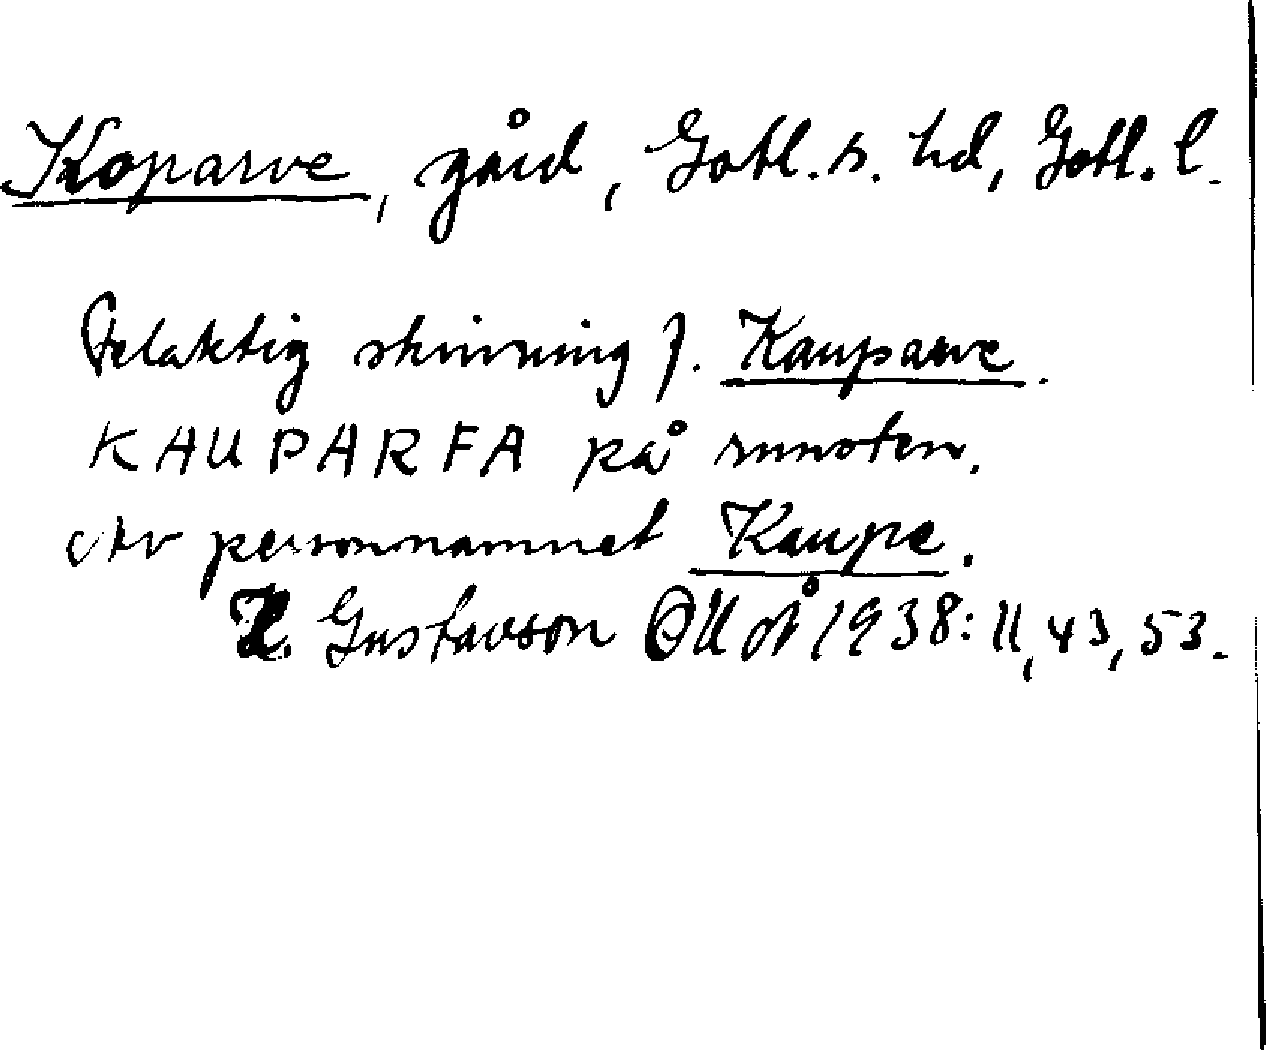 Koparve, gård, Gotl. s. hd, Gotl. l.
Felaktig skrivning f. Kauparve.
KAUPARFA på runsten.
Av personnamnet Kaupe.
H. Gustavson OUÅ 1938: 11, 43, 53.